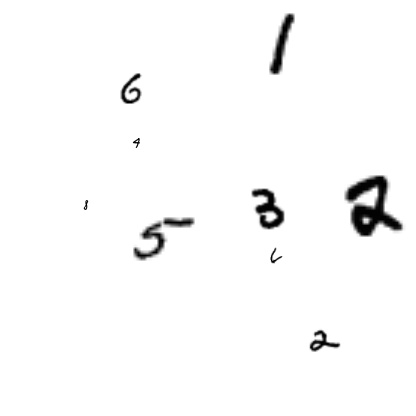 1
6
4
8
5 3 2
6
2